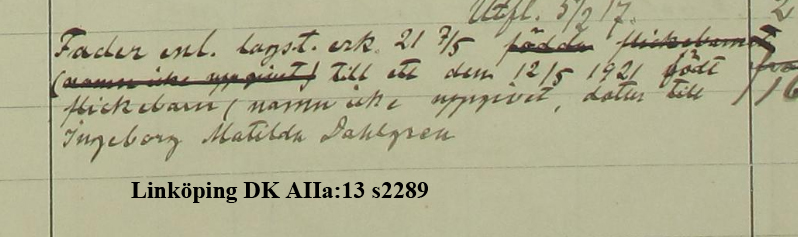 Utfl. 5/2 17.
Fader enl. lagst. erk. 21 7/5 födda flickebarnet
(namn icke uppgivet) till ett den 12/5 1921 född
flickebarn (namn icke uppgivet, dotter till
Ingeborg Matilda Dahlgren
Linköping DK AIIa:13 s2289